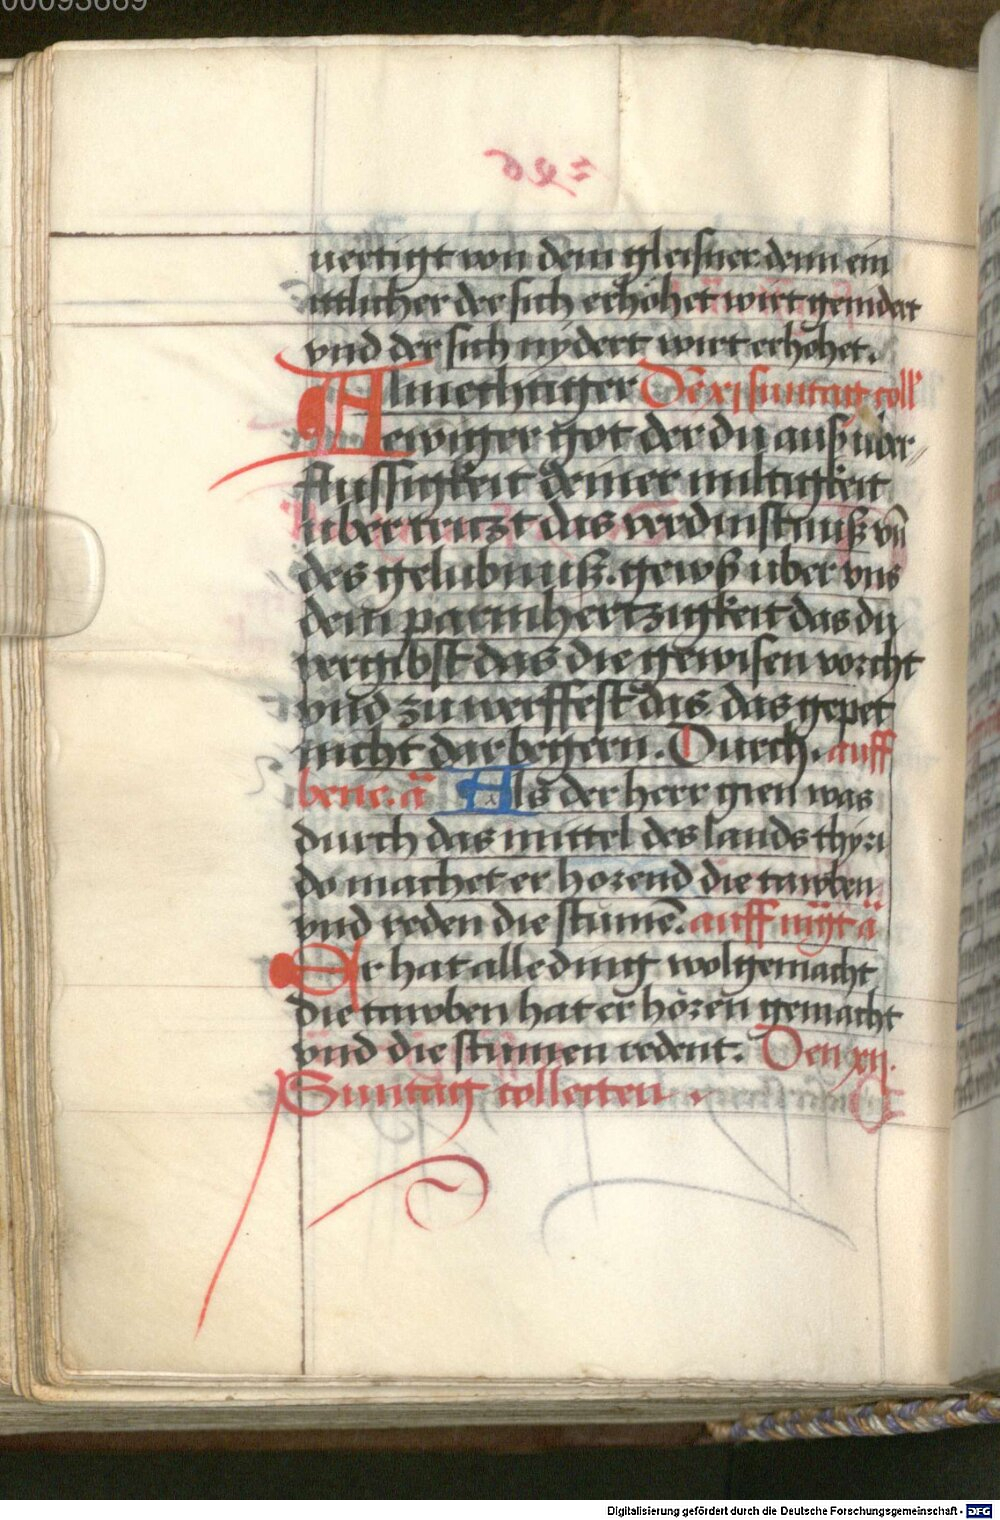 00093669
uertigt von dem gleisner denn ein
ittlicher der sich erhöhet wirt genidert
vnd der sich nydert wirt erhöhet.
Almechtiger Dē xi suntag coll'
ewiger got der du auß über
flussigkeit deiner miltigkeit
übertrizt das verdinstnuß vn̄
des gelubnuß. gewß über vns
dein parmhertzigkeit das du
vergibst das die gewisen vorcht
vnd zu werffest das das gepet
nicht dar begern. Durch. auff
bene. ā Als der herr gien was
durch das mittel des lands thyri
do machet er hörend die tawben
vnd reden die stumē. auff mgt ā
Er hat alle ding wolgemacht
die tawben hat er hören gemacht
vnd die stumen redent. Den xij.
Suntag collecten.
Digitalisierung gefördert durch die Deutsche Forschungsgemeinschaft - DFG